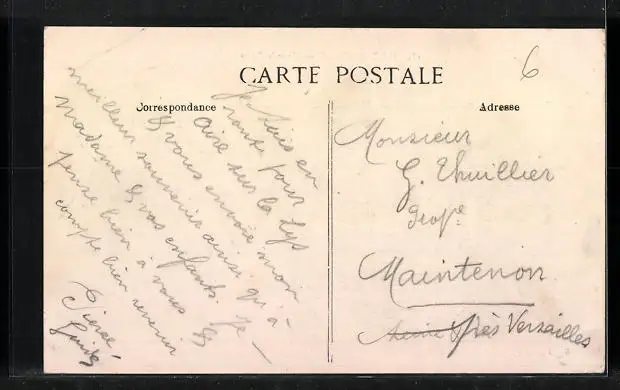 CARTE POSTALE
6
Correspondance
Adresse
Je suis en
route pour
Aire sur la Lys
& vous envoie mon
meilleur souvenir ainsi qu'à
Madame & vos enfants. Je
pense bien à vous &
compte bien revenir
Monsieur
G. Thuillier
Prop.e
Maintenon
près Versailles